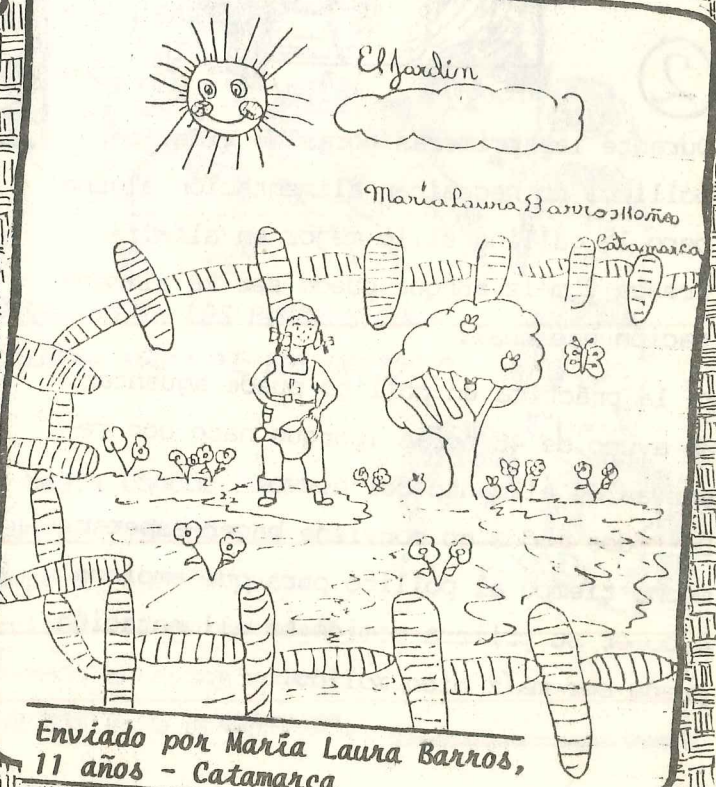 El Jardín
María Laura Barros Moño
Catamarca
Enviado por María Laura Barros,
11 años - Catamarca